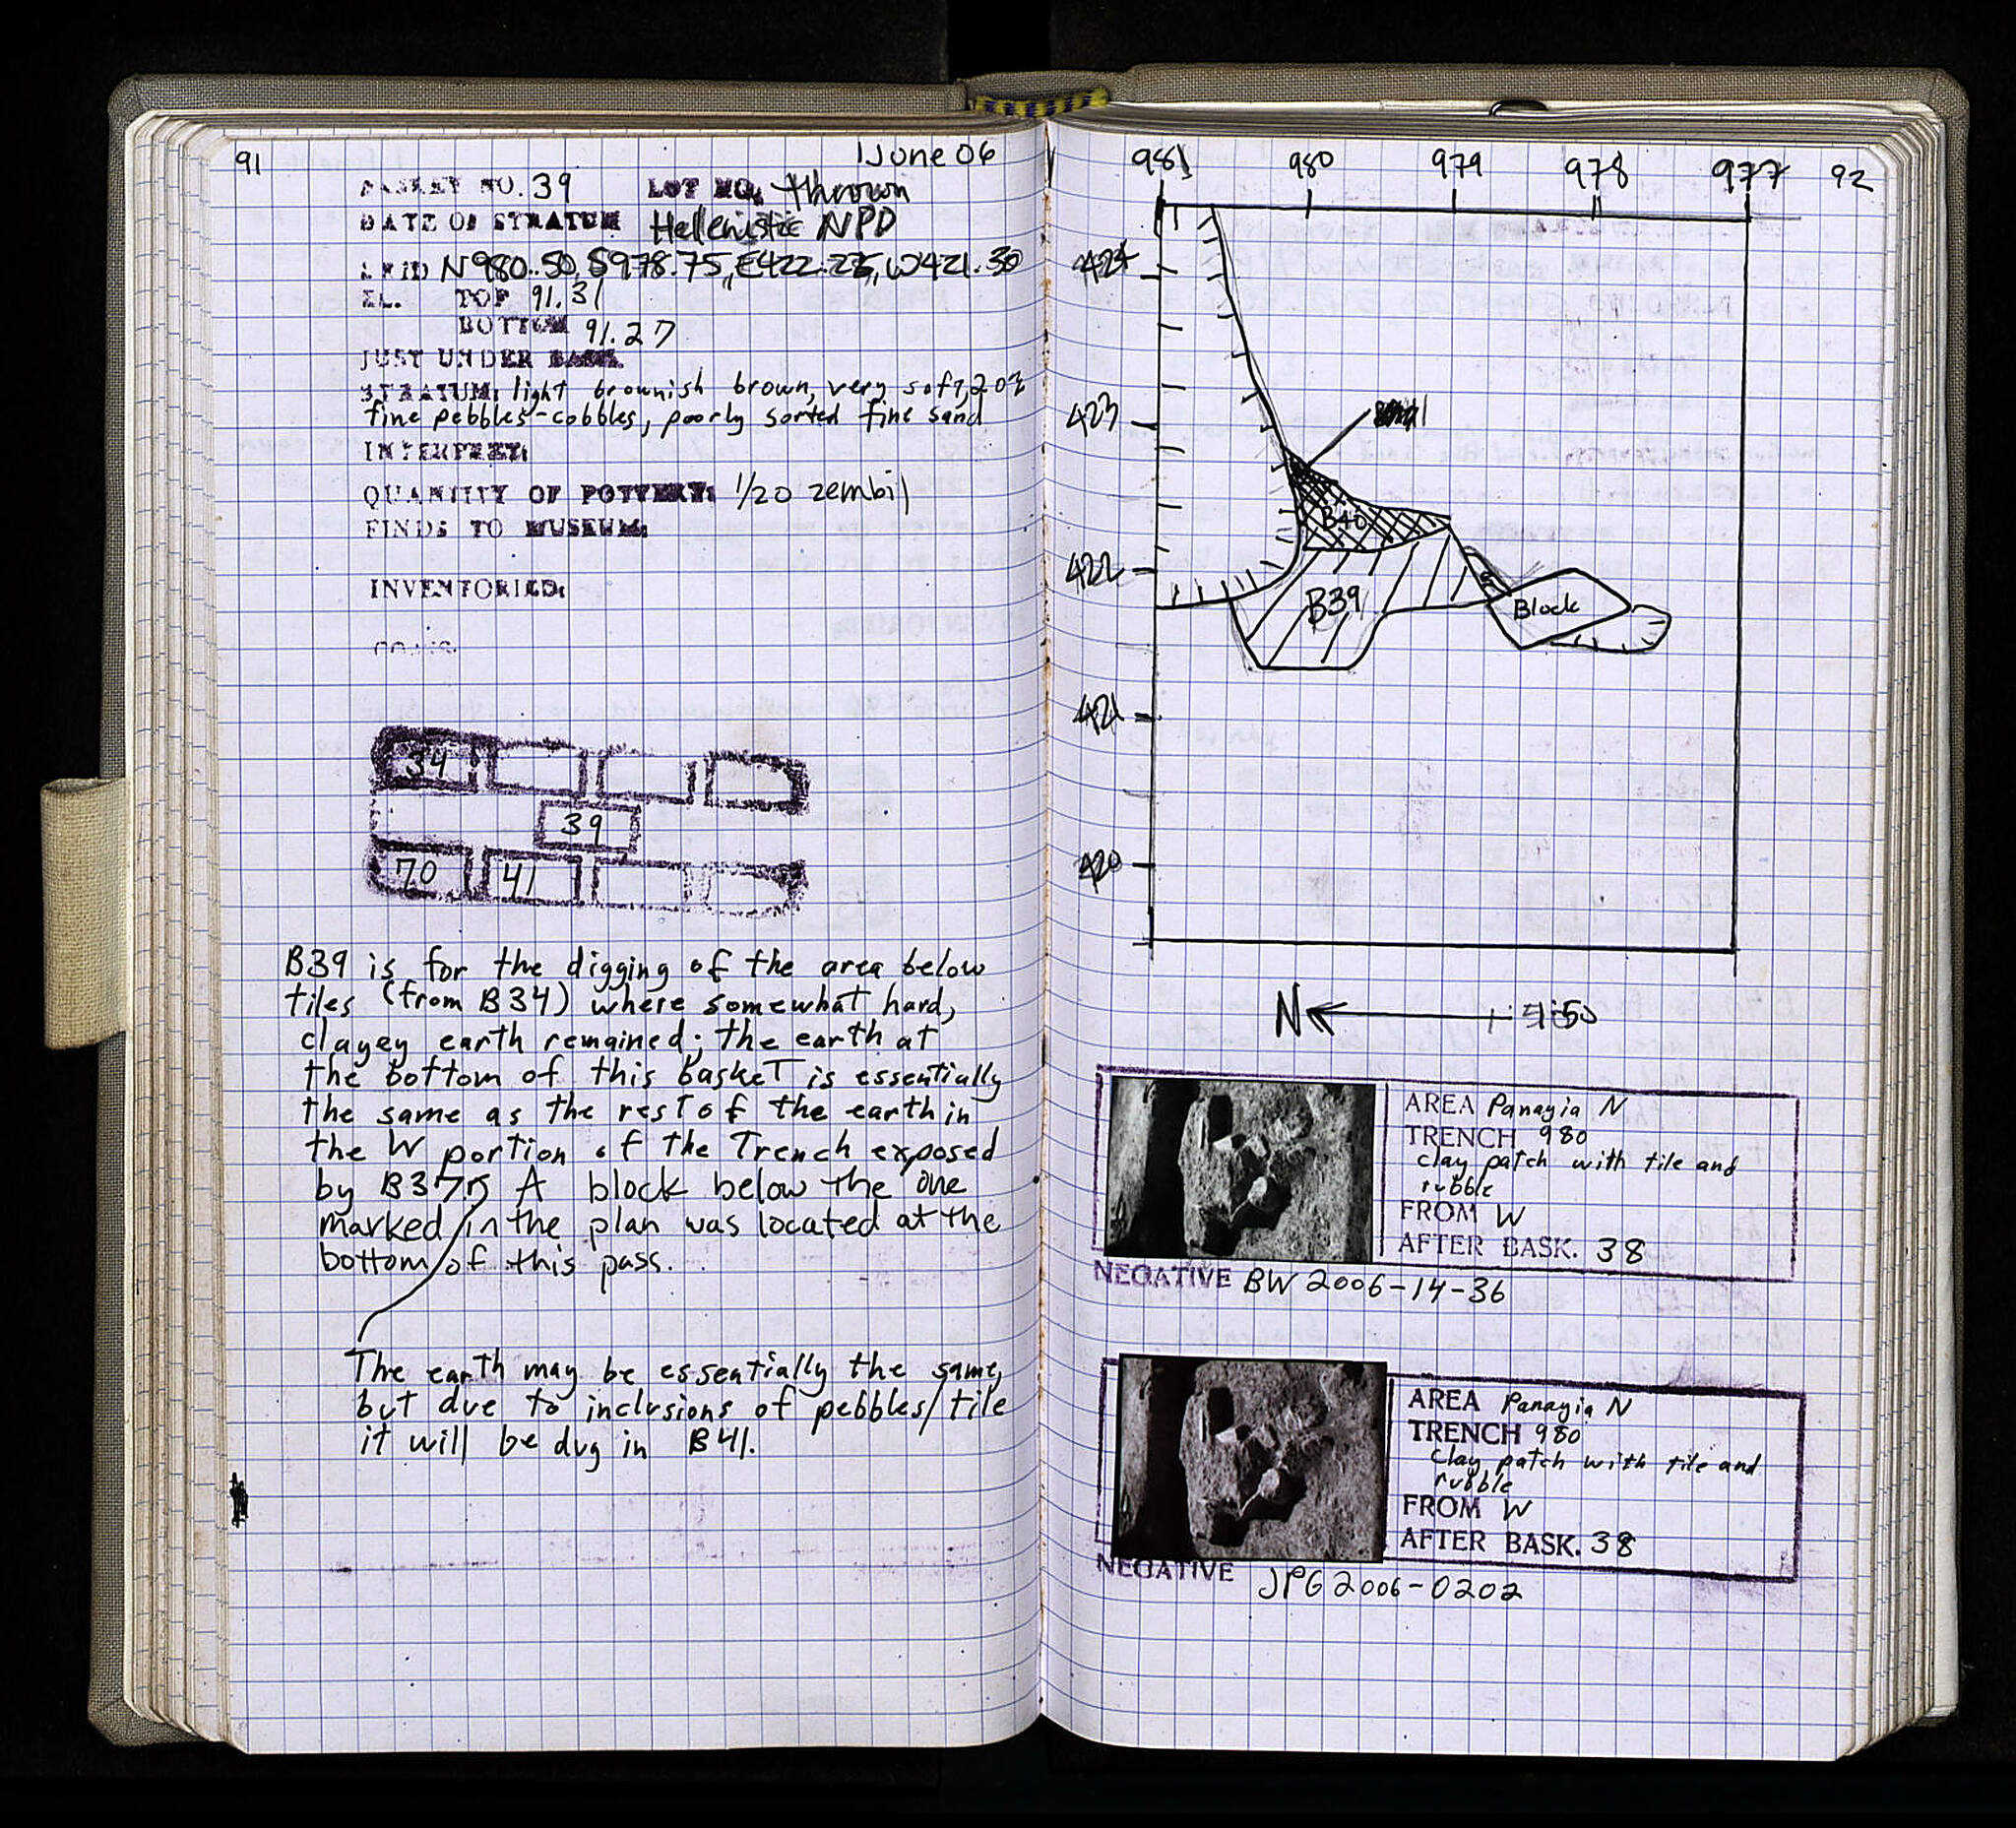 91
1 June 06
BASKET NO. 39 LOT NO. thrown
DATE OF STRATUM Hellenistic NPD
GRID N980.50, S978.75, E422.25, W421.30
EL. TOP 91.31
BOTTOM 91.27
JUST UNDER BASK.
STRATUM: light brownish brown, very soft, 20%
fine pebbles-cobbles, poorly sorted fine sand
INTERPRET:
QUANTITY OF POTTERY: 1/20 zembil
FINDS TO MUSEUM:
INVENTORIED:
COINS:
34
39
70 41
B39 is for the digging of the area below
tiles (from B34) where somewhat hard,
clayey earth remained; the earth at
the bottom of this basket is essentially
the same as the rest of the earth in
the W portion of the Trench exposed
by B37. A block below the one
marked in the plan was located at the
bottom of this pass.
The earth may be essentially the same,
but due to inclusions of pebbles/tile
it will be dug in B41.
981 980 979 978 977 92
424
423
B40
422
B39
Block
421
420
N
AREA Panayia N
TRENCH 980
clay patch with tile and
rubble
FROM W
AFTER BASK. 38
NEGATIVE BW 2006-14-36
AREA Panayia N
TRENCH 980
clay patch with tile and
rubble
FROM W
AFTER BASK. 38
NEGATIVE JPG 2006-0202